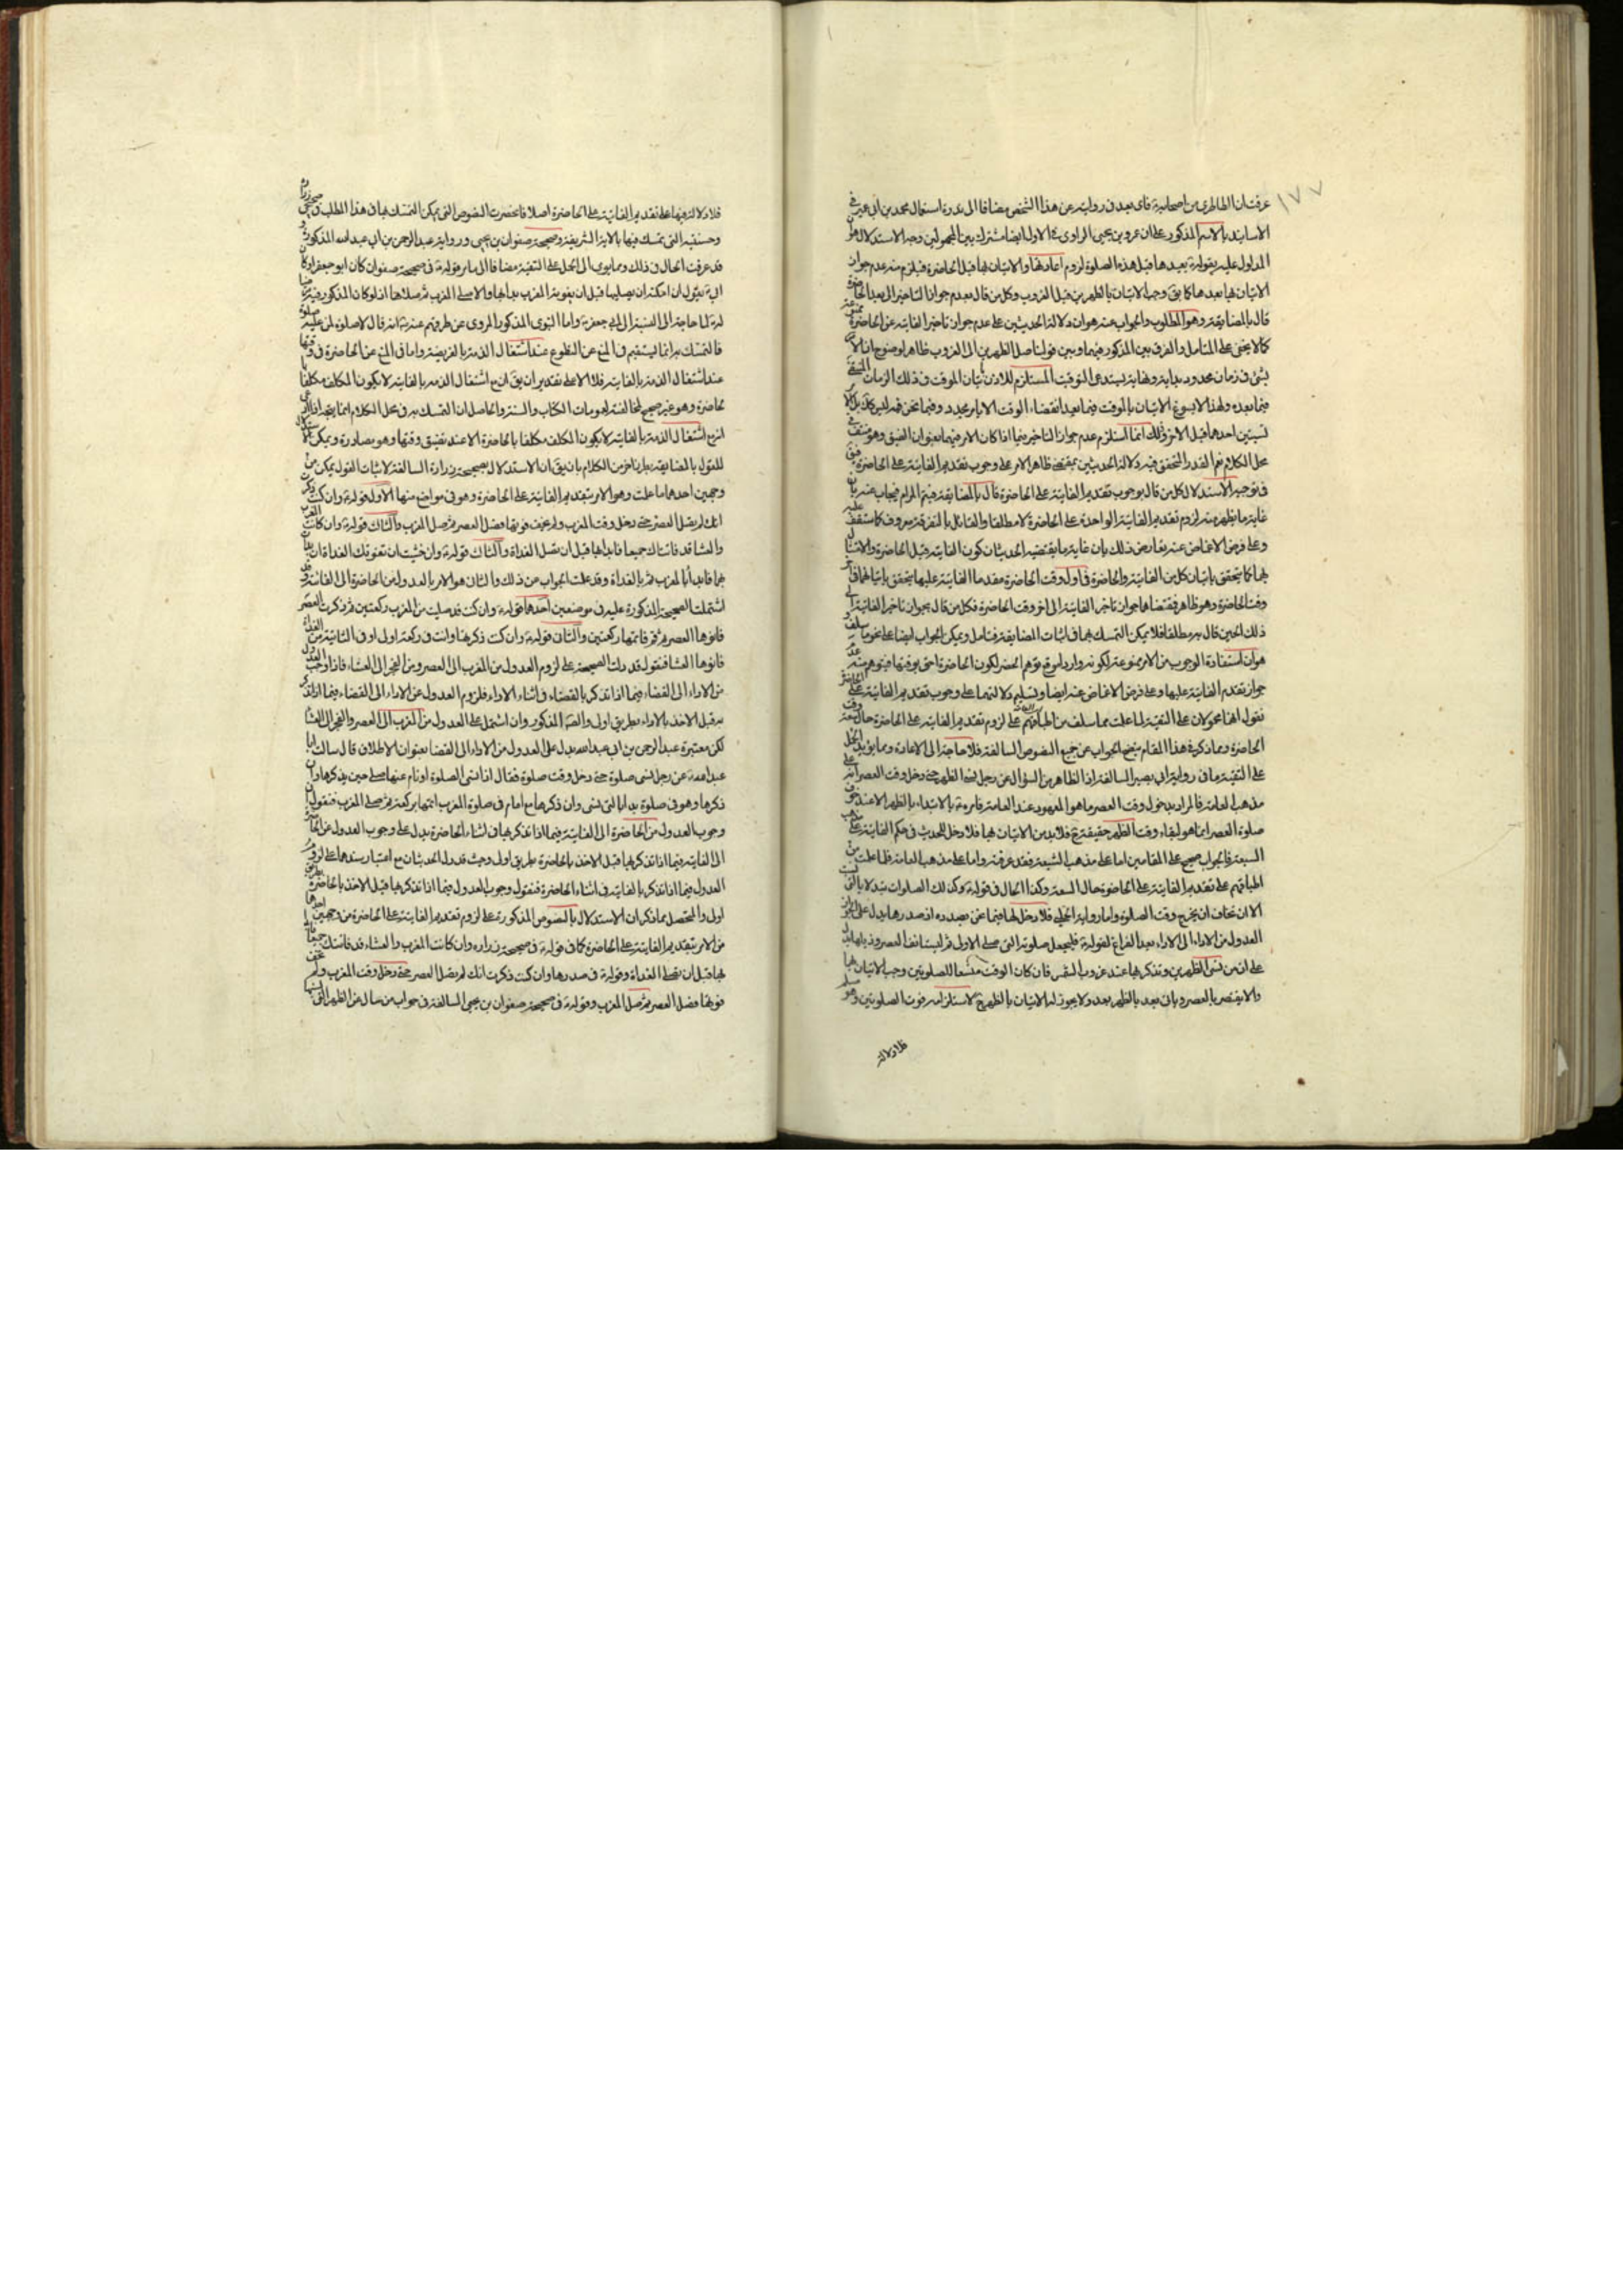 ١٧٧
عرفت ان الطاطري من اصحابه فاى بعد فى روايته عن هذا الشخص مضافا الى ندرة استعمال محمد بن ابى عمير فى
الاسانيد بالاسم المذكور على ان عمرو بن يحيى الراوى فى الاول ايضا مشترك بين المجهولين وجه الاستدلال هو ان
المدلول عليه بقوله بعيدها قبل هذه الصلوة لزوم اعادتها والاتيان بها قبل الحاضرة فيلزم منه عدم جواز
الاتيان بها بعدها كما يق وجب الاتيان بالظهرين قبل الغروب وكل من قال بعدم جواز التاخير الى بعد الحاضرة
قال بالمضايقة وهو المطلوب والجواب عنه هو ان دلالة الحديثين على عدم جواز تاخير الفايتة عن الحاضرة ممنوعة
كما لا يخفى على المتامل والفرق بين المذكور فيهما وبين قولنا صل الظهرين الى الغروب ظاهر لوضوح ان الامر
بشئ فى زمان محدود ببداية ونهاية يستدعى التوقيت المستلزم للاذن باتيان الموقت فى ذلك الزمان
فيما بعده ولهذا لا يسوغ الاتيان بالموقت فيما بعد انقضاء الوقت الا بامر مجدد وفيما نحن فيه ليس كك بل
لشيئين احدهما قبل الاخر وذلك انما استلزم عدم جواز التاخير فيما اذا كان الامر فيهما بعنوان الضيق وهو منتف فى
محل الكلام نعم القدر المتحقق فيه دلالة الحديثين بمقتضى ظاهر الامر على وجوب تقديم الفايتة على الحاضرة فيق
فى توجيه الاستدلال كل من قال بوجوب تقديم الفايتة على الحاضرة قال بالمضايقة فيتم المرام فيجاب عنه بان
غاية ما يظهر منه لزوم تقديم الفايتة الواحدة على الحاضرة لا مطلقا والقائل بالتفرقة معروف كما ستقف عليه
وعلى فرض الاغماض عنه يعارض ذلك بان غاية ما يقتضيه الحديثان كون الفايتة قبل الحاضرة والامتثال
بهما كما يتحقق باتيان كل من الفايتة والحاضرة فى اول وقت الحاضرة مقدما الفايتة عليها يتحقق باتيانهما فى اخر
وقت الحاضرة وهو ظاهر فمقتضاهما جواز تاخير الفايتة الى اخر وقت الحاضرة فكل من قال بجواز تاخير الفايتة الى
ذلك الحين قال به مطلقا فلا يمكن التمسك بهما فى اثبات المضايقة فتامل ويمكن الجواب ايضا على نحو ما سلف و
هو ان استفادة الوجوب من الامر ممنوعة لكونه واردا مورد توهم الحضر لكون الحاضرة احق بوقتها فيتوهم منه عدم
جواز تقدم الفايتة عليها وعلى فرض الاغماض عنه ايضا وتسليم دلالتهما على وجوب تقديم الفايتة على الحاضرة
نقول انهما محمولان على التقية لما علمت مما سلف من اطباقهم على لزوم تقديم الفايتة على الحاضرة حال سعة وقت
الحاضرة ومما ذكر فى هذا المقام يتضح الجواب عن جميع النصوص السالفة فلا حاجة الى الاعادة ومما يؤيد الحمل
على التقية ما فى رواية ابى بصير السالفة اذ الظاهر من السؤال عن رجل نسى الظهر حتى دخل وقت العصر انه على
مذهب العامة فالمراد بدخول وقت العصر ما هو المعهود عند العامة فامره بالابتداء بالظهر الا عند خوف
صلوة العصر انما هو لبقاء وقت الظهر حقيقة ح فلا بد من الاتيان بها فلا دخل للحديث فى حكم الفايتة على مذهب
الشيعة فالجواب صحيح على المقامين اما على مذهب الشيعة فقد عرفته واما على مذهب العامة فلما علمت من
اطباقهم على تقديم الفايتة على الحاضرة حال السعة وكذا الحال فى قوله وكذلك الصلوات تبدء بالتى نسيت
الا ان تخاف ان يخرج وقت الصلوة واما رواية الحلبى فلا دخل لها فيما نحن بصدده اذ صدرها يدل على جواز
العدول من الاداء الى الاداء بعد الفراغ لقوله فليجعل صلوته التى صلى الاولى ثم ليستانف العصر وذيلها يدل
على ان من نسى الظهرين وتذكر بها عند غروب الشمس فان كان الوقت متسعا للصلوتين وجب الاتيان بهما
والا يقتصر بالعصر ويات بعد بالظهر بعد ولا يجوز له الاتيان بالظهر ح لاستلزامه فوت الصلوتين وهو مسلم
فلا دلالة
فلا دلالة فيها على تقديم الفايتة على الحاضرة اصلا فانحصرت النصوص التى يمكن التمسك بها فى هذا المطلب فى صحيحى زرارة
وحسنته التى تمسك فيها بالاية الشريفة وصحيحة صفوان بن يحيى ورواية عبد الرحمن بن ابى عبد الله المذكورة و
قد عرفت الحال فى ذلك ومما يومى الى الحمل على التقية مضافا الى ما مر قوله فى صحيحة صفوان كان ابو جعفر او كان
ابى يقول ان امكنه ان يصليها قبل ان يفوته المغرب بدا بها والا صلى المغرب ثم صلاها اذ لو كان المذكور مرضيا
له لما حاجة الى النسبة الى ابى جعفر واما النبوى المذكور المروى عن طرقهم عنه انه قال لا صلوة لمن عليه صلوة
فالتمسك به انما يستقيم فى المنع عن التطوع عند اشتغال الذمة بالفريضة واما فى المنع عن الحاضرة فى وقتها
عند اشتغال الذمة بالفايتة فلا الا على تقدير ان يق ان مع اشتغال الذمة بالفايتة لا يكون المكلف مكلفا
بالحاضرة وهو غير صحيح لمخالفته لعمومات الكتاب والسنة والحاصل ان التمسك به فى محل الكلام انما يتجه اذا ادعى
انه مع اشتغال الذمة بالفايتة لا يكون المكلف مكلفا بالحاضرة الا عند تضيق وقتها وهو مصادرة ويمكن الاستدلال
للقول بالمضايقة بما تاخر من الكلام بان يق ان الاستدلال بصحيحة زرارة السالفة لاثبات القول يمكن من
وجهين احدهما ما علمت وهو الامر بتقديم الفايتة على الحاضرة وهو فى مواضع منها الاول قوله وان كنت ذكرت
انك لم تصل العصر حتى دخل وقت المغرب ولم تخف فوتها فصل العصر ثم صل المغرب والثانى قوله وان كانت المغرب
والعشا قد فاتتاك جميعا فابدا بهما قبل ان تصل الغداة والثالث قوله وان خشيت ان تفوتك الغداة ان بدات
بهما فابدا بالمغرب ثم بالغداة وقد علمت الجواب من ذلك والثانى هو الامر بالعدول من الحاضرة الى الفايتة وقد
اشتملت الصحيحة المذكورة عليه فى موضعين احدهما قوله وان كنت قد صليت من المغرب ركعتين ثم ذكرت العصر
فانوها العصر ثم قم فاتمها ركعتين والثانى قوله وان كنت ذكرتها وانت فى ركعة اولى او فى الثانية من الغداة
فانوها العشا فنقول قد دلت الصحيحة على لزوم العدول من المغرب الى العصر ومن الفجر الى العشاء فاذا وجب العدول
من الاداء الى القضاء فيما اذا تذكر بالقضاء فى اثناء الاداء فلزوم العدول عن الاداء الى القضاء فيما اذا تذكر
به قبل الاخذ بالاداء بطريق اولى والصحيحة المذكورة وان اشتمل على العدول من المغرب الى العصر والفجر الى العشا
لكن معتبرة عبد الرحمن بن ابى عبد الله يدل على العدول من الاداء الى القضا بعنوان الاطلاق قال سالت ابا
عبد الله عن رجل نسى صلوة حتى دخل وقت صلوة فقال اذا نسى الصلوة او نام عنها صلى حين يذكرها وان
ذكرها وهو فى صلوة بدا بالتى نسى وان ذكرها مع امام فى صلوة المغرب اتمها بركعة ثم صلى المغرب فنقول ان
وجوب العدول من الحاضرة الى الفايتة فيما اذا تذكر بها فى اثناء الحاضرة يدل على وجوب العدول عن الحاضرة
الى الفايتة فيما اذا تذكر بها قبل الاخذ بالحاضرة بطريق اولى وحيث قد دل الحديثان مع اعتبار سندهما على لزوم
العدول فيما اذا تذكر بالفايتة فى اثناء الحاضرة فنقول وجوب العدول فيما اذا تذكر بها قبل الاخذ بالحاضرة بطريق
اولى والمتحصل مما ذكر ان الاستدلال بالنصوص المذكورة على لزوم تقديم الفايتة على الحاضرة من وجهين احدهما
من الامر بتقديم الفايتة على الحاضرة كما فى قوله فى صحيحة زرارة وان كانت المغرب والعشاء قد فاتتك جميعا فابدا
بهما قبل ان تصلى الغداة وقوله فى صدرها وان كنت ذكرت انك لم تصل العصر حتى دخل وقت المغرب ولم تخف
فوتها فصل العصر ثم صل المغرب وقوله فى صحيحة صفوان بن يحيى السالفة فى جواب من سال عن الظهر التى نسيها